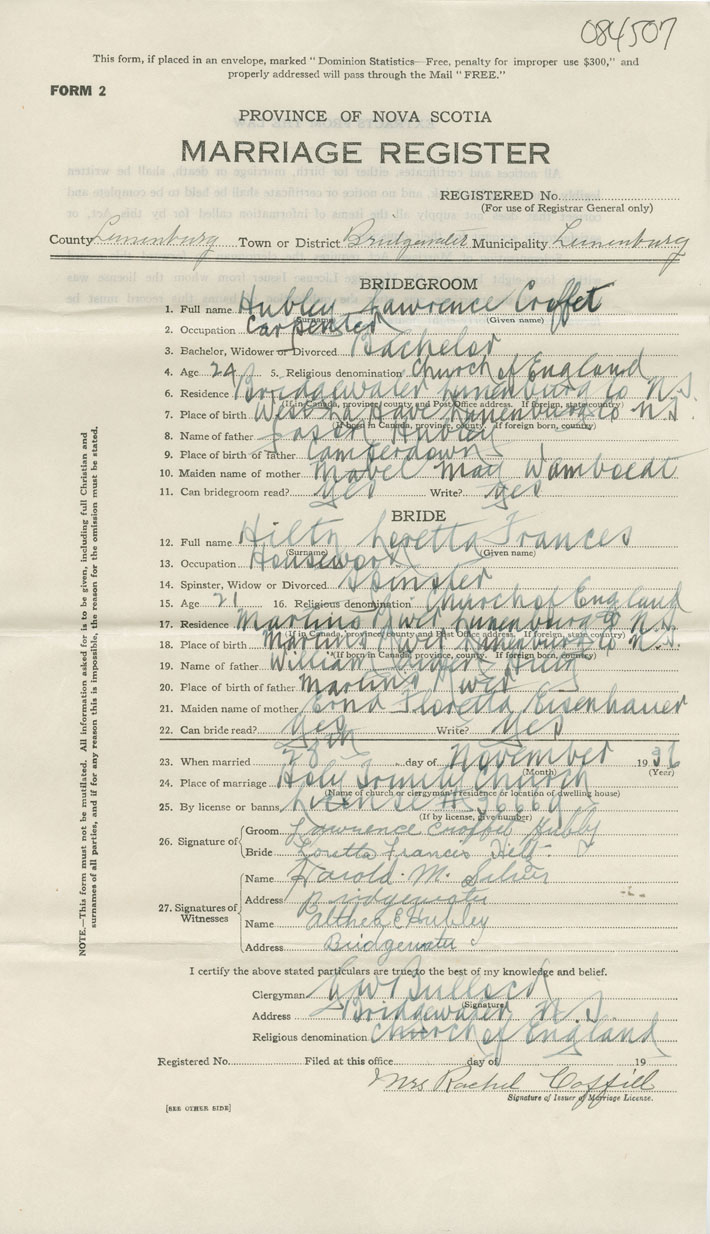 084507
This form, if placed in an envelope, marked "Dominion Statistics—Free, penalty for improper use $300," and
properly addressed will pass through the Mail "FREE."
FORM 2
PROVINCE OF NOVA SCOTIA
MARRIAGE REGISTER
REGISTERED No.
(For use of Registrar General only)
County Lunenburg Town or District Bridgewater Municipality Lunenburg
BRIDEGROOM
1. Full name Hubley Lawrence Croffet
(Surname) (Given name)
2. Occupation Carpenter
3. Bachelor, Widower or Divorced Bachelor
4. Age 24 5. Religious denomination Church of England
6. Residence Bridgewater Lunenburg Co N.S.
(If in Canada, province, county and Post Office address. If foreign, state country)
7. Place of birth West La Have Lunenburg Co N.S.
(If born in Canada, province, county. If foreign born, country)
8. Name of father Hubley
9. Place of birth of father Camperdown
10. Maiden name of mother Mabel May Wamboldt
11. Can bridegroom read? yes Write? yes
BRIDE
12. Full name Hiltz Loretta Frances
(Surname) (Given name)
13. Occupation Housework
14. Spinster, Widow or Divorced Spinster
15. Age 21 16. Religious denomination Church of England
17. Residence Martins River Lunenburg Co N.S.
(If in Canada, province, county and Post Office address. If foreign, state country)
18. Place of birth Martins River Lunenburg Co N.S.
(If born in Canada, province, county. If foreign born, country)
19. Name of father William Hiltz
20. Place of birth of father Martins River
21. Maiden name of mother Floretta Eisenhauer
22. Can bride read? yes Write? yes
23. When married 28th day of November 1936
(Month) (Year)
24. Place of marriage Holy Trinity Church
(Name of church or clergyman's residence or location of dwelling house)
25. By license or banns License #
(If by license, give number)
26. Signature of
Groom Lawrence Croffet Hubley
Bride Loretta Frances Hiltz
27. Signatures of Witnesses
Name Harold. M. Silver
Address Bridgewater
Name Althea E Hubley
Address Bridgewater
I certify the above stated particulars are true to the best of my knowledge and belief.
Clergyman Bullock
(Signature)
Address Bridgewater N.S.
Religious denomination Church of England
Registered No. Filed at this office day of 19
Mrs Rachel Coffill
Signature of Issuer of Marriage License.
[SEE OTHER SIDE]
NOTE.—This form must not be mutilated. All information asked for is to be given, including full Christian and
surnames of all parties, and if for any reason this is impossible, the reason for the omission must be stated.